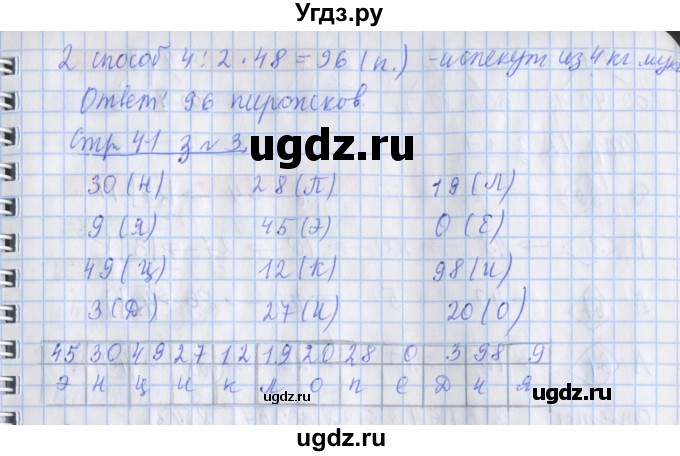 Угдз.ру
2 способ 4 : 2 · 48 = 96 (п.) - испекут из 4 кг муки
Ответ: 96 пирожков.
ugdz.ru
Стр 41 з № 3.
ugdz.ru ugdz.ru
30 (Н) 28 (П) 19 (Л)
9 (Я) 45 (Э) 0 (Е)
49 (Ц) 12 (К) 98 (И)
3 (Д) 27 (И) 20 (О)
ugdz.ru
45 30 49 27 12 19 20 28 0 3 98 9
Э Н Ц И К Л О П Е Д И Я
ugdz.ru
ugdz.ru